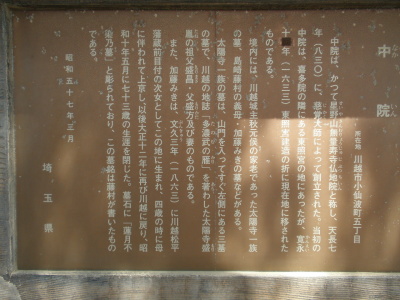 中院
所在地 川越市小仙波町五丁目
中院は、かつて星野山無量寿寺仏地院と称し、天長七
年(八三〇)に、慈覚大師によって創立された。当初の
中院は、喜多院の隣にある東照宮の地にあったが、寛永
十年(一六三三)東照宮建造の折に現在地に移された
ものである。
境内には、川越城主秋元侯の家老であった太陽寺一族
の墓、島崎藤村の義母・加藤みきの墓などがある。
太陽寺一族の墓は、山門を入ってすぐ左側にある三基
の墓で、川越の地誌「多濃武の雁」を著わした太陽寺盛
胤の祖父盛昌・父盛方及び妻のものである。
また、加藤みきは、文久三年(一八六三)に川越松平
藩蔵前目付の次女としてこの地に生まれ、四歳の時に母
に伴われて上京し、以後大正十二年に再び川越に戻り、昭
和十年五月に七十三歳の生涯を閉じた。墓石に「蓮月不
染乃墓」と彫られており、この墓銘は藤村が書いたもの
である。
昭和五十七年三月
埼玉県